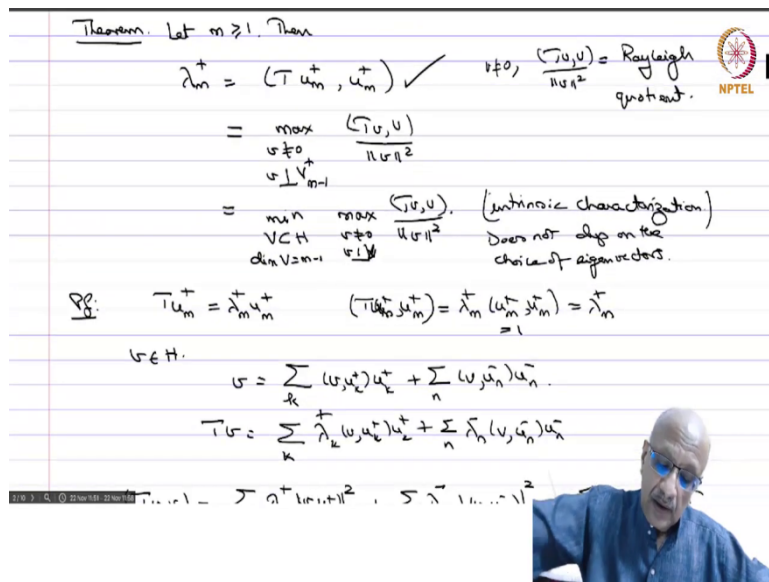 Theorem. Let m ≥ 1. Then
λ_m^+ = (T u_m^+, u_m^+) ✓ v≠0, (Tv,v)/||v||² = Rayleigh quotient.
NPTEL
= max_{v≠0, v⊥V_{m-1}^+} (Tv,v)/||v||²
= min_{V⊂H, dim V=m-1} max_{v≠0, v⊥V} (Tv,v)/||v||². (intrinsic characterization)
Does not dep on the
choice of eigenvectors.
Pf: T u_m^+ = λ_m^+ u_m^+ (T u_m^+, u_m^+) = λ_m^+ (u_m^+, u_m^+) = λ_m^+
= 1
v∈H.
v = Σ_k (v,u_k^+) u_k^+ + Σ_n (v,u_n^-) u_n^-.
Tv = Σ_k λ_k^+ (v,u_k^+) u_k^+ + Σ_n λ_n^- (v,u_n^-) u_n^-